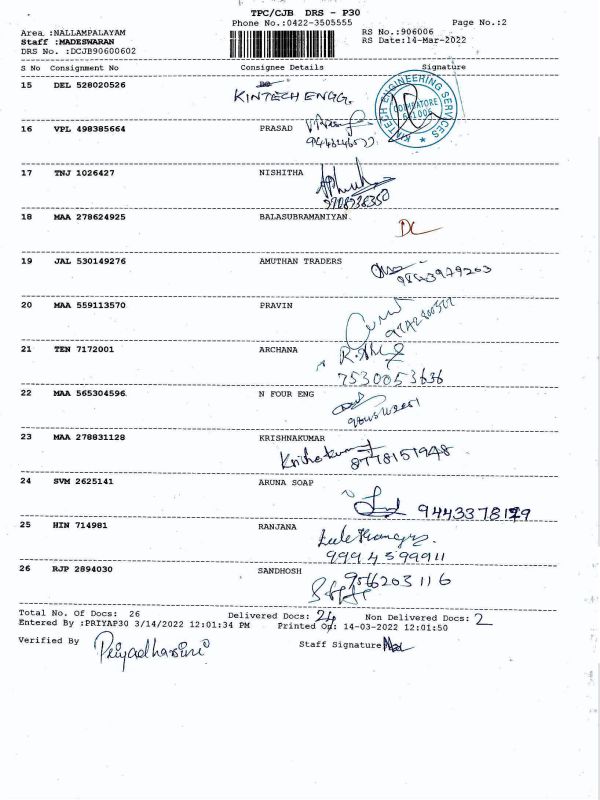 TPC/CJB DRS - P30
Phone No.:0422-3505555
Page No.:2
Area :NALLAMPALAYAM
RS No.:906006
Staff :MADESWARAN
RS Date:14-Mar-2022
DRS No. :DCJB90600602
S No Consignment No Consignee Details Signature
15 DEL 528020526 KINTECH ENGG.
KINTECH ENGINEERING SERVICES
COIMBATORE
641006
16 VPL 498385664 PRASAD
17 TNJ 1026427 NISHITHA
18 MAA 278624925 BALASUBRAMANIYAN
DC
19 JAL 530149276 AMUTHAN TRADERS
20 MAA 559113570 PRAVIN
21 TEN 7172001 ARCHANA
7530053636
22 MAA 565304596 N FOUR ENG
23 MAA 278831128 KRISHNAKUMAR
8778151948
24 SVM 2625141 ARUNA SOAP
25 HIN 714981 RANJANA
9994599911
26 RJP 2894030 SANDHOSH
9566203116
Total No. Of Docs: 26 Delivered Docs: 24 Non Delivered Docs: 2
Entered By :PRIYAP30 3/14/2022 12:01:34 PM Printed On: 14-03-2022 12:01:50
Verified By Priyadharsini Staff Signature